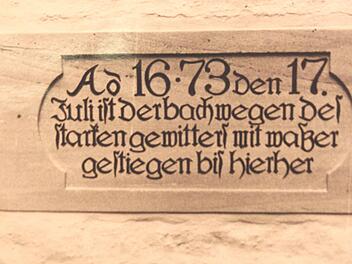 Ao 16·73 den 17.
Juli ist der bach wegen des
starken gewitters mit waßer
gestiegen bis hierher